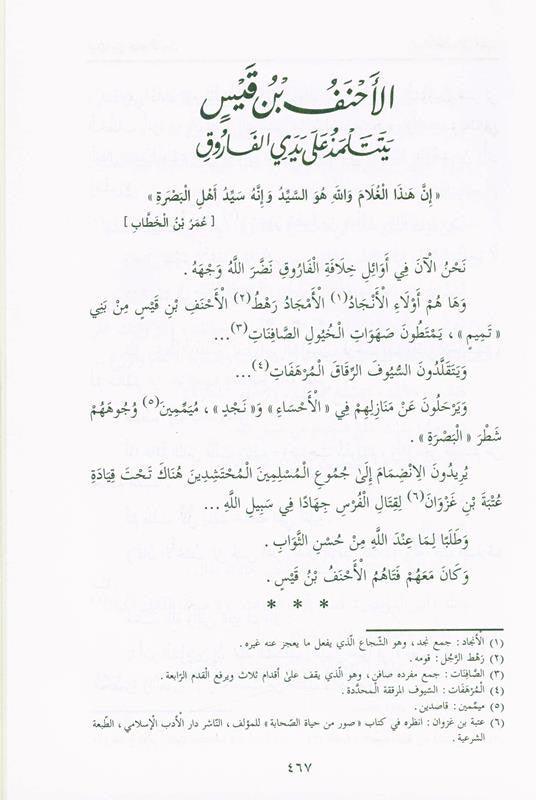 الأَحْنَفُ بْنُ قَيْسٍ
يَتَتَلْمَذُ عَلَى يَدَيِ الفَارُوقِ
« إِنَّ هَذَا الْغُلَامَ وَاللَّهِ هُوَ السَّيِّدُ وَإِنَّهُ سَيِّدُ أَهْلِ الْبَصْرَةِ »
[ عُمَرُ بْنُ الْخَطَّابِ ]
نَحْنُ الْآنَ فِي أَوَائِلِ خِلَافَةِ الْفَارُوقِ نَضَّرَ اللَّهُ وَجْهَهُ .
وَهَا هُمْ أُوْلَاءِ الْأَنْجَادُ(١) الْأَمْجَادُ رَهْطُ(٢) الْأَحْنَفِ بْنِ قَيْسٍ مِنْ بَنِي
« تَمِيمٍ » ، يَمْتَطُونَ صَهَوَاتِ الْخُيُولِ الصَّافِنَاتِ(٣)...
وَيَتَقَلَّدُونَ السُّيُوفَ الرِّقَاقَ الْمُرْهَفَاتِ(٤)...
وَيَرْحَلُونَ عَنْ مَنَازِلِهِمْ فِي « الْأَحْسَاءِ » وَ« نَجْدٍ » ، مُيَمِّمِينَ(٥) وُجُوهَهُمْ
شَطْرَ « الْبَصْرَةِ » .
يُرِيدُونَ الِانْضِمَامَ إِلَىٰ جُمُوعِ الْمُسْلِمِينَ الْمُحْتَشِدِينَ هُنَاكَ تَحْتَ قِيَادَةِ
عُتْبَةَ بْنِ غَزْوَانَ(٦) لِقِتَالِ الْفُرْسِ جِهَادًا فِي سَبِيلِ اللَّهِ ...
وَطَلَبًا لِمَا عِنْدَ اللَّهِ مِنْ حُسْنِ الثَّوَابِ .
وَكَانَ مَعَهُمْ فَتَاهُمُ الْأَحْنَفُ بْنُ قَيْسٍ .
* * *
(١) الْأَنجاد : جمع نجد ، وهو الشّجاع الّذي يفعل ما يعجز عنه غيره .
(٢) رَهْط الرَّجُل : قومه .
(٣) الصَّافِنَات : جمع مفرده صافن ، وهو الّذي يقف على أقدام ثلاث ويرفع القدم الرّابعة .
(٤) الْمُرْهَفَات : السّيوف المرققة المحدَّدة .
(٥) ميمّمين : قاصدين .
(٦) عتبة بن غزوان : انظره في كتاب « صور من حياة الصّحابة » للمؤلف ، النّاشر دار الْأدب الْإسلامي ، الطّبعة
الشرعية .
٤٦٧